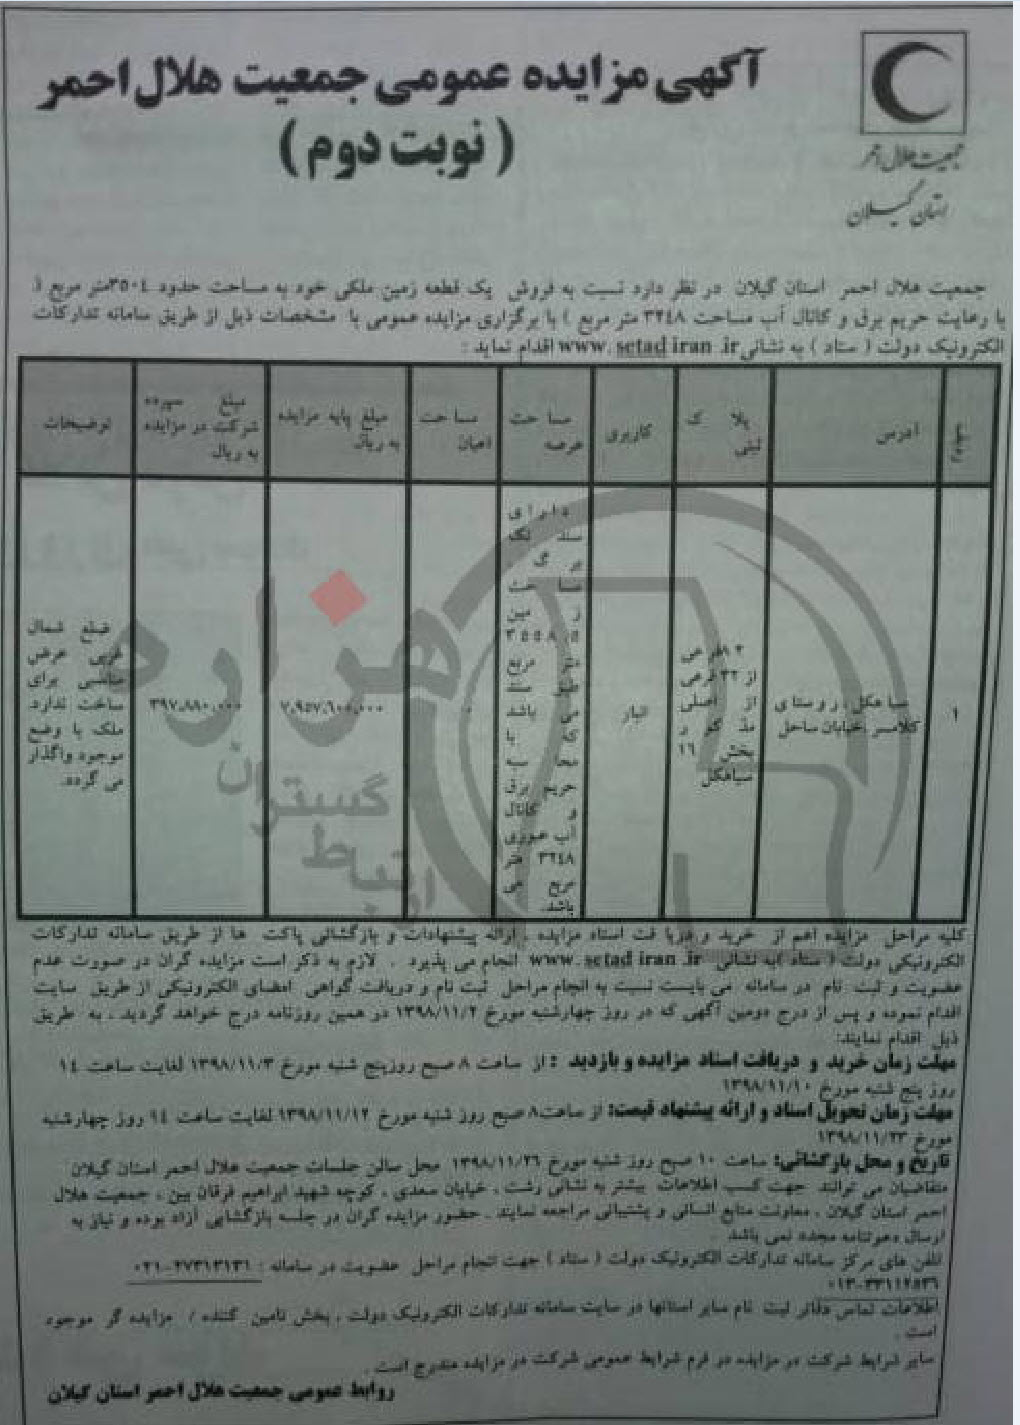 آگهی مزایده عمومی جمعیت هلال احمر
( نوبت دوم )
جمعیت هلال احمر
استان گیلان
جمعیت هلال احمر استان گیلان در نظر دارد نسبت به فروش یک قطعه زمین ملکی خود به مساحت حدود ۳۵۰۴متر مربع (
با رعایت حریم برق و کانال آب مساحت ۳۲۴۸ متر مربع ) با برگزاری مزایده عمومی با مشخصات ذیل از طریق سامانه تدارکات
الکترونیک دولت ( ستاد ) به نشانی www. setad iran .ir اقدام نماید :
ردیف
آدرس
پلا ک
ثبتی
کاربری
مسا حت
عرصه
مسا حت
اعیان
مبلغ پایه مزایده
به ریال
مبلغ سپرده
شرکت در مزایده
به ریال
توضیحات
۱
سیاهکل ، روستای
کلامسر ،خیابان ساحل
از ۳۲ فرعی
از اصلی
مذ کو ر
بخش ۱۶
سیاهکل
انبار
دارای
سند تک
بر گ
مسا حت
ز مین
متر مربع
طبق سند
می باشد
که با
محا سبه
حریم برق
و کانال
آب عبوری
۳۲۴۸ متر
مربع می
باشد.
۷،۹۵۷،۶۰۰،۰۰۰
۳۹۷،۸۸۰،۰۰۰
ضلع شمال
غربی عرض
مناسبی برای
ساخت ندارد.
ملک با وضع
موجود واگذار
می گردد.
هزاره
گستران
ارتباط
کلیه مراحل مزایده اعم از خرید و دریا فت اسناد مزایده ، ارائه پیشنهادات و بازگشائی پاکت ها از طریق سامانه تدارکات
الکترونیکی دولت ( ستاد )به نشانی www. setad iran .ir انجام می پذیرد . لازم به ذکر است مزایده گران در صورت عدم
عضویت و ثبت نام در سامانه می بایست نسبت به انجام مراحل ثبت نام و دریافت گواهی امضای الکترونیکی از طریق سایت
اقدام نموده و پس از درج دومین آگهی که در روز چهارشنبه مورخ ۱۳۹۸/۱۱/۲ در همین روزنامه درج خواهد گردید ، به طریق
ذیل اقدام نمایند:
مهلت زمان خرید و دریافت اسناد مزایده و بازدید : از ساعت ۸ صبح روزپنج شنبه مورخ ۱۳۹۸/۱۱/۳ لغایت ساعت ۱۴
روز پنج شنبه مورخ ۱۳۹۸/۱۱/۱۰
مهلت زمان تحویل اسناد و ارائه پیشنهاد قیمت: از ساعت۸ صبح روز شنبه مورخ ۱۳۹۸/۱۱/۱۲ لغایت ساعت ۱۴ روز چهارشنبه
مورخ ۱۳۹۸/۱۱/۲۳
تاریخ و محل بازگشائی: ساعت ۱۰ صبح روز شنبه مورخ ۱۳۹۸/۱۱/۲۶ محل سالن جلسات جمعیت هلال احمر استان گیلان
متقاضیان می توانند جهت کسب اطلاعات بیشتر به نشانی رشت ، خیابان سعدی ، کوچه شهید ابراهیم فرقان بین ، جمعیت هلال
احمر استان گیلان ، معاونت منابع انسانی و پشتیبانی مراجعه نمایند . حضور مزایده گران در جلسه بازگشایی آزاد بوده و نیاز به
ارسال دعوتنامه مجدد نمی باشد .
تلفن های مرکز سامانه تدارکات الکترونیک دولت ( ستاد ) جهت انجام مراحل عضویت در سامانه : ۰۲۱-۲۷۳۱۳۱۳۱
۰۱۳-۳۳۱۱۲۵۳۶
اطلاعات تماس دفاتر ثبت نام سایر استانها در سایت سامانه تدارکات الکترونیک دولت ، بخش تامین کننده / مزایده گر موجود
است .
سایر شرایط شرکت در مزایده در فرم شرایط عمومی شرکت در مزایده مندرج است .
روابط عمومی جمعیت هلال احمر استان گیلان